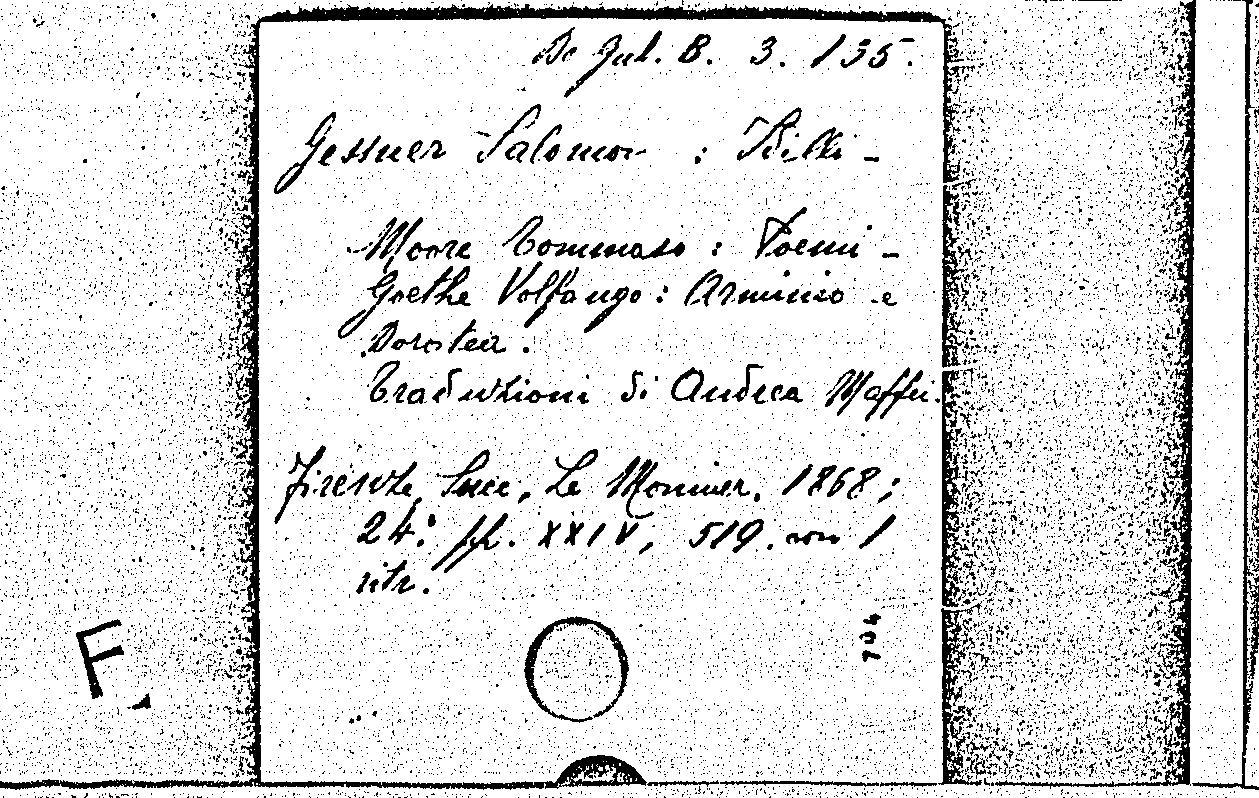 De Gul. B. 3. 135.
Gessner Salomon : Idilli -
Moore Tommaso : Poemi -
Goethe Volfango : Arminio e
Dorotea .
Traduzioni di Andrea Maffei.
Firenze, Succ, Le Monnier, 1868 ;
24.° pp. XXIV, 519. con 1
ritr.
704
F